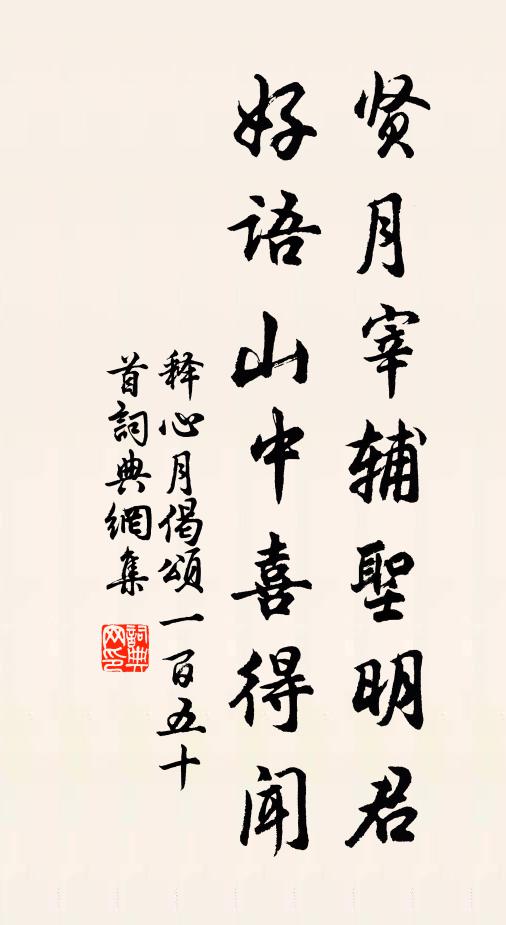 贤月宰辅聖明君
好語山中喜得闻
释心月偈頌一百五十
首詞典網集
詞典
网印